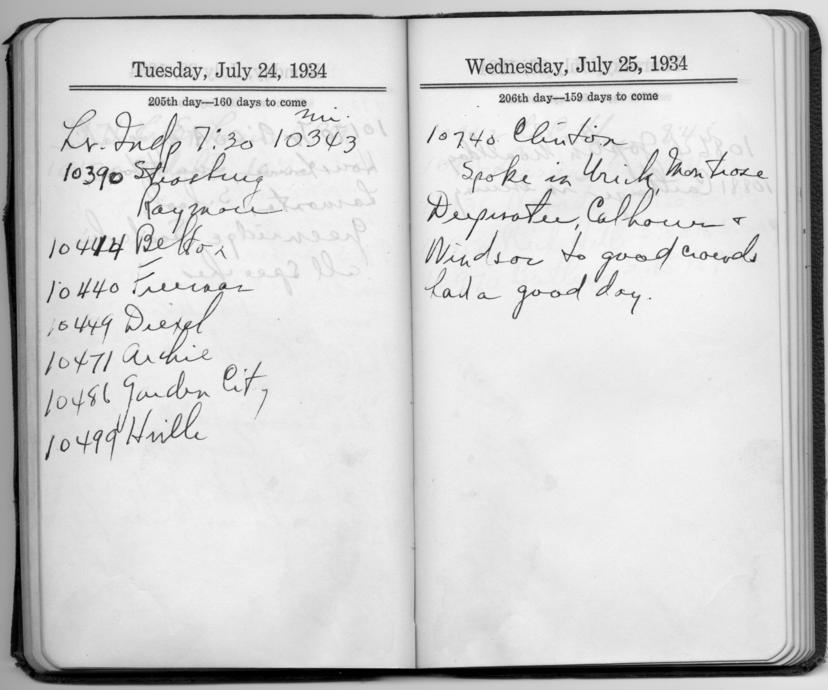 Tuesday, July 24, 1934
205th day—160 days to come
Lv. Indp 7:30 10343 mi.
10390 Strasburg
Raymore
10414 Belton
10440 Freeman
10449 Drexel
10471 Archie
10486 Garden City
10499 Hville
Wednesday, July 25, 1934
206th day—159 days to come
10740 Clinton
Spoke in Urich, Montrose
Deepwater, Calhoun +
Windsor to good crowds
had a good day.